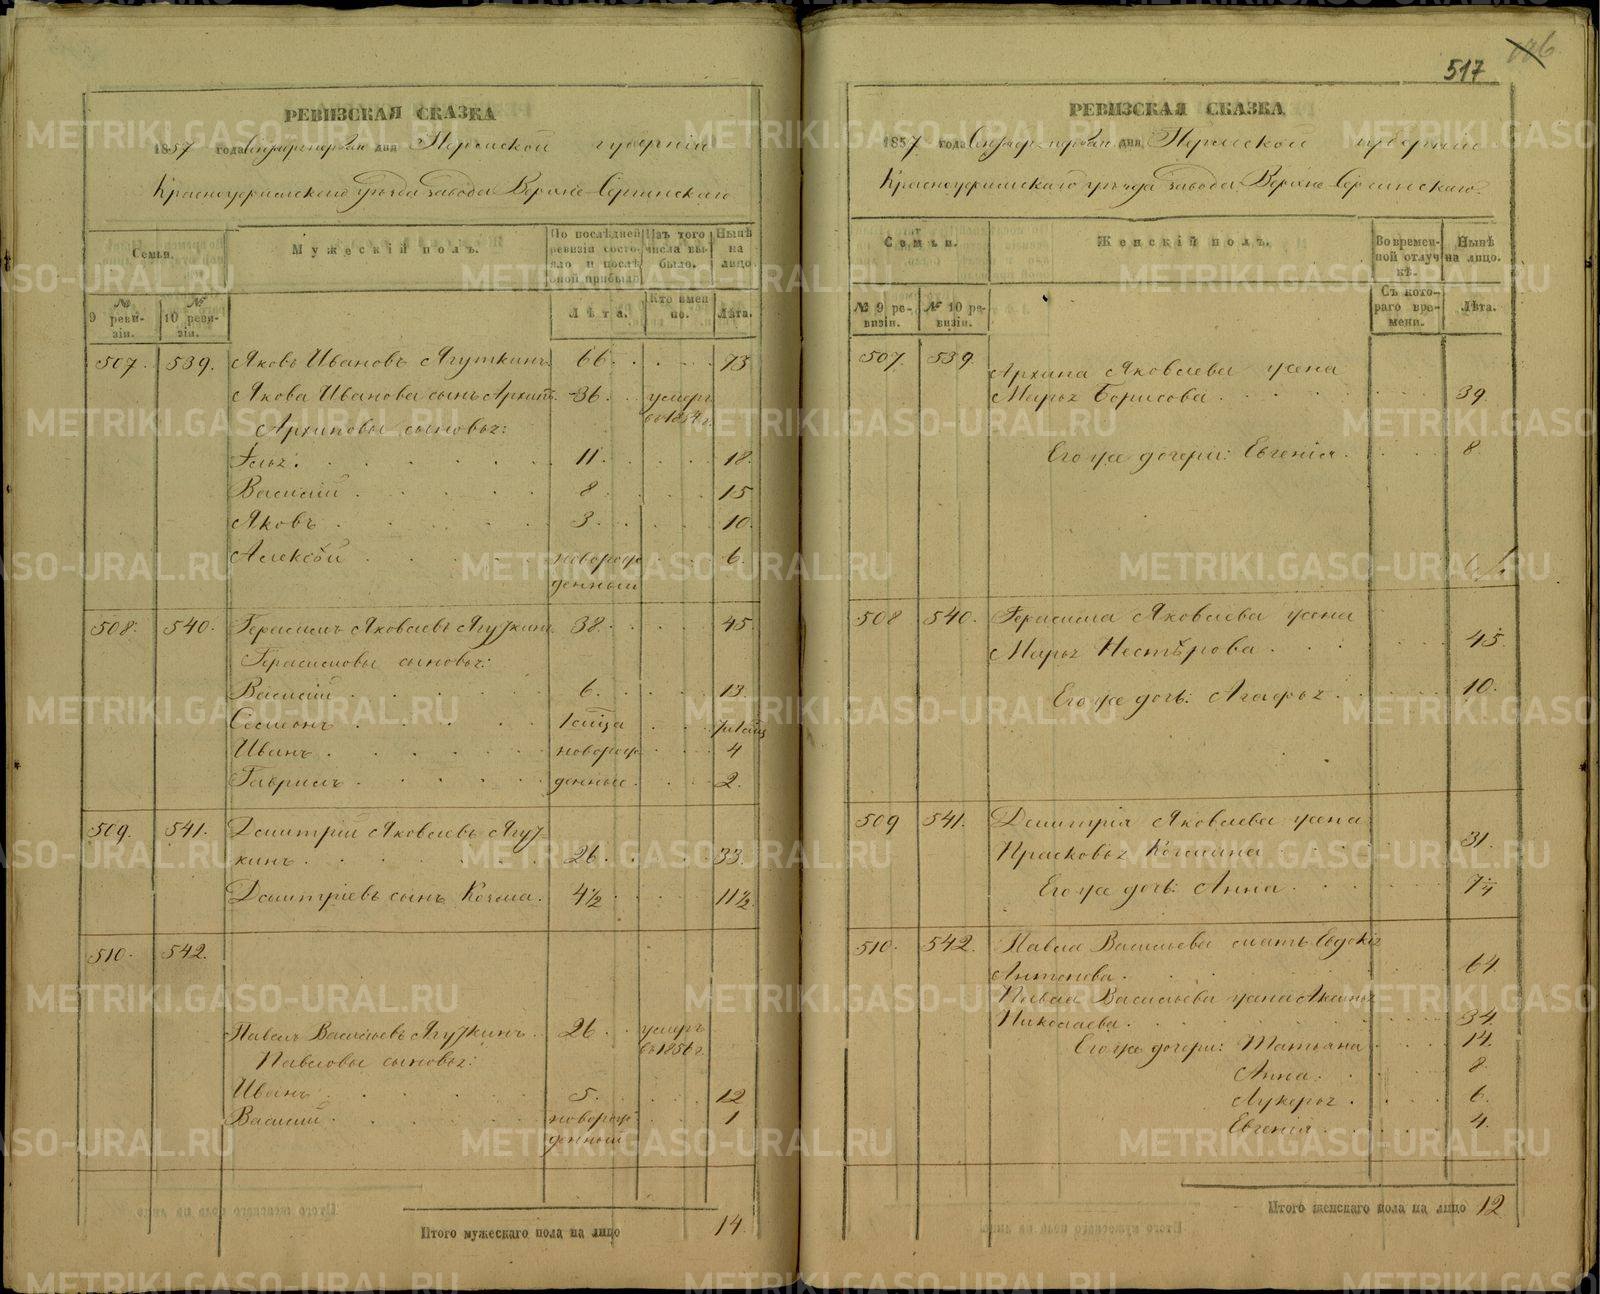 517
РЕВИЗСКАЯ СКАЗКА
1857 года дня Пермской губерніи
Красноуфимскаго уѣзда завода Верхне-Сергинскаго
Семьи.
Мужескій полъ.
По послѣдней ревизіи состояло и послѣ оной прибыло
Изъ того числа выбыло.
Нынѣ на лицо.
№ 9 ревизіи.
№ 10 ревизіи.
Лѣта.
Кто именно.
Лѣта.
507. 539. Яковъ Ивановъ Ягуткинъ 66. 73
Якова Иванова сынъ Архипъ 36. умеръ въ 1854 г.
Архиповы сыновья:
Илья. 11. 18.
Василій 8 15
Яковъ 3. 10.
Алексѣй новорожденный 6.
508. 540. Герасимъ Яковлевъ Ягуткинъ 38. 45.
Герасимовы сыновья:
Василій 6. 13.
Семенъ
Иванъ новорож 4
Гаврилъ денные 2.
509. 541. Дмитрій Яковлевъ Ягут-
кинъ 26. 33.
Дмитріевъ сынъ Козма. 4½ 11½
510. 542.
Павелъ Васильевъ Ягуткинъ. 26 умеръ въ 1856 г.
Павловы сыновья:
Иванъ 5. 12
Василій новорожденный 1
Итого мужескаго пола на лицо 14.
РЕВИЗСКАЯ СКАЗКА
1857 года дня Пермской губерніи
Красноуфимскаго уѣзда завода Верхне-Сергинскаго
Семьи.
Женскій полъ.
Во временной отлучкѣ.
Нынѣ на лицо.
№ 9 ревизіи.
№ 10 ревизіи.
Съ котораго времени.
Лѣта.
507. 539. Архипа Яковлева жена
Марья Борисова 39.
Его же дочери: Евгенія. 8.
508 540. Герасима Яковлева жена
Марья Нестѣрова 45.
Его же дочь: Агафья 10.
509 541. Дмитрія Яковлева жена
Прасковья Козмина 31.
Его же дочь: Анна.
510. 542. Павла Васильева мать Евдокія
Антонова 64
Павла Васильева жена Аксинья
Николаева 34.
Его же дочери: Татьяна 14.
Анна. 8.
Лукерья. 6.
Евгенія 4.
Итого женскаго пола на лицо 12
METRIKI.GASO-URAL.RU